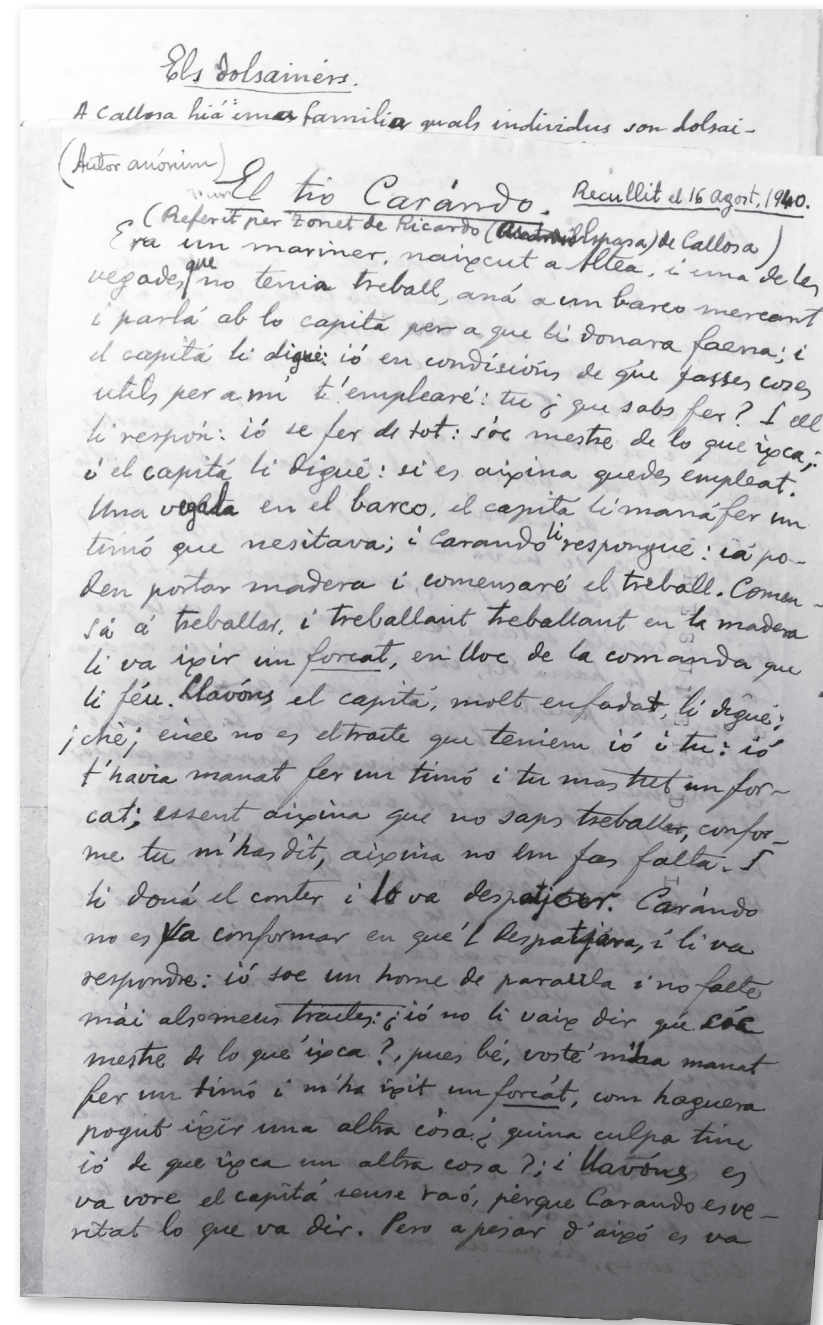 Els dolsainérs.
A Callosa hiá una familia quals individus son dolsai-
(Autor anónim)
El tio Carándo. Recullit el 16 agost, 1940.
(Referit per Tonet de Ricardo ( Espasa) de Callosa)
Era un mariner, naixcut a Altea, i una de les
vegades que no tenia treball, aná a un barco mercant
i parlá ab lo capitá per a que li donara faena; i
el capitá li digué: ió en condisións de que fasses coses
utils per a mi t'emplearé: tu ¿que sabs fer? I ell
li respón: ió se fer de tot: sóc mestre de lo que ixca;
i el capitá li digué: si es aixina quedes empleat.
Una vegada en el barco, el capitá li maná fer un
timó que nesitava; i Carando li respongué: iá po-
den portar madera i comensaré el treball. Comen-
sá á treballar, i treballant treballant en la madera
li va ixir un forcat, en lloc de la comanda que
li féu. Llavóns el capitá, molt enfadat, li digué:
¡chè; eixe no es el traite que teniem ió i tu: ió
t'havia manat fer un timó i tu mas tret un for-
cat; essent aixina que no saps treballar, confor-
me tu m'has dit, aixina no em fas falta. I
li doná el conter i lo va despatjar. Carándo
no es va conformar en qué'l despatjara, i li va
respondre: ió soc un home de paraula i no falte
mái als meus traites: ¿ió no li vaix dir que sóc
mestre de lo que ixca?, pues bé, vosté m'ha manat
fer un timó i m'ha ixit un forcát, com haguera
pogut ixir una altra cosa ¿quina culpa tinc
ió de que ixca un altra cosa?; i llavóns es
va vore el capitá sense raó, pèrque Carando es ve-
ritat lo que va dir. Pero apesar d'aixó es va